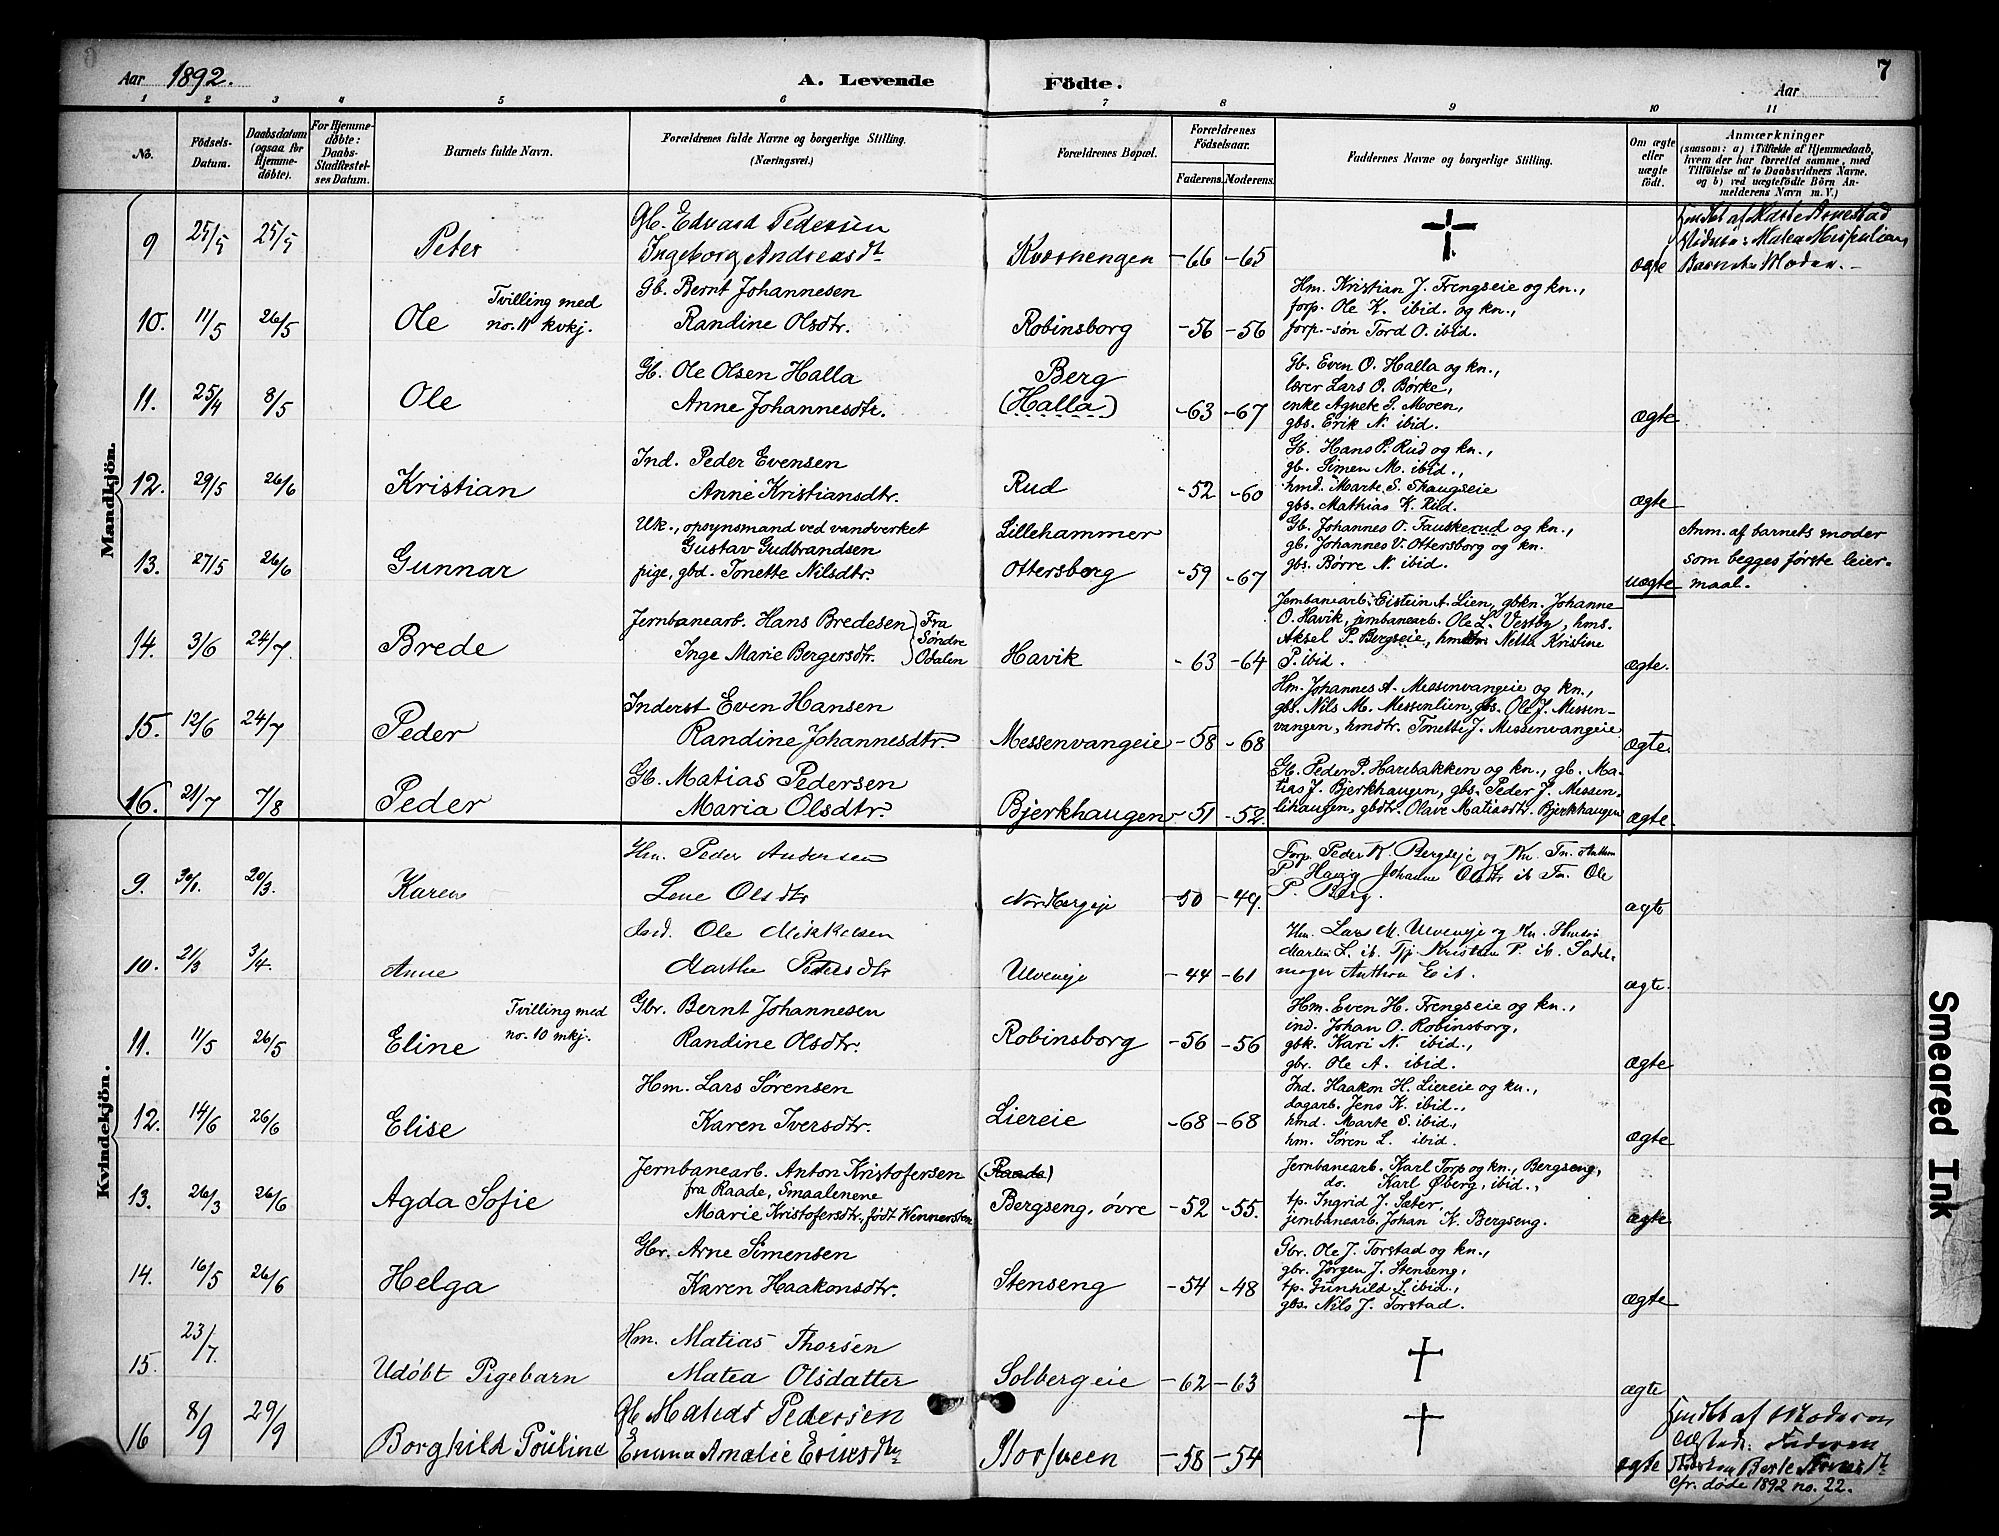 7
Aar 1892.
A. Levende Födte.
Aar
1 2 3 4 5 6 7 8 9 10 11
No.
Födsels-
Datum.
Daabsdatum
(ogsaa for
Hjemme-
døbte).
For Hjemme-
døbte:
Daabs-
Stadfæstel-
ses Datum.
Barnets fulde Navn.
Forældrenes fulde Navne og borgerlige Stilling.
(Næringsvei.)
Forældrenes Bopæl.
Forældrenes
Födselsaar.
Faderens. Moderens.
Faddernes Navne og borgerlige Stilling.
Om ægte
eller
uægte
født.
Anmærkninger
(saasom: a) i Tilfælde af Hjemmedaab,
hvem der har forrettet samme, med
Tilföielse af to Daabsvidners Navne.
og b) ved uægtefödte Börn An-
melderens Navn m. V.)
Mandkjön.
9 25/5 25/5 Peter
Gb. Edvard Pedersen
Ingeborg Andreasdt
Kværnengen -66 -65
†
ægte
Barnets Moder.
10. 11/5 26/5 Ole
Tvilling med
no. 11 kvkj.
Gb. Bernt Johannesen
Randine Olsdtr.
Robinsborg -56 -56
Hm. Kristian J. Frengseie og kn.,
forp. Ole K. ibid. og kn.,
forp.-søn Tord O. ibid.
11. 25/4 8/5 Ole
Gb. Ole Olsen Halla
Anne Johannesdtr.
Berg
(Halla) -63 -67
Gb. Even O. Halla og kn.,
lærer Lars O. Børke,
enke Agnete P. Moen,
gbs. Erik N. ibid.
ægte
12. 29/5 26/6 Kristian
Ind. Peder Evensen
Anne Kristiansdtr.
Rud -52 -60
Gb. Hans P. Rud og kn.,
gb. Simen M. ibid.,
hmd. Marte S. Skaugseie
gbs. Mathias K. Rud.
ægte
13. 27/5 26/6 Gunnar
Uk., opsynsmand ved vandverket
Gustav Gudbrandsen
pige, gbd. Tonette Nilsdtr.
Lillehammer
Ottersborg -59 -67
Gb. Johannes O. Fauskerud og kn.,
gb. Johannes V. Ottersborg og kn.
gbs. Børre N. ibid.
uægte
Anm. af barnets moder
som begges første leier-
maal.
14. 3/6 24/7 Brede
Jernbanearb. Hans Bredesen
Inge Marie Bergersdtr.
Fra
Søndre
Odalen
Havik -63 -64
Jernbanearb. Eistein A. Lien, gbkn. Johanne
O. Havik, jernbanearb. Ole L. Vestby, hms.
Aksel P. Bergseie, Netta Kristine
P. ibid.
ægte.
15. 12/6 24/7 Peder
Inderst Even Hansen
Randine Johannesdtr.
Messenvangeie -58 -68
Hm. Johannes A. Messenvangeie og kn.,
gbs. Nils M. Messenlien, gbs. Ole J. Messen-
vangen, hmdtr. Tonette J. Messenvangeie
ægte.
16. 21/7 7/8 Peder
Gb. Matias Pedersen
Maria Olsdtr.
Bjerkhaugen -51 -52.
Gb. Peder P. Harebakken og kn., gb. Ma-
tias J. Bjerkhaugen, gbs. Peder J. Messen-
lihaugen, gbdt. Olave Matiasdtr. Bjerkhaugen
ægte.
Kvindekjön.
9. 30/1 20/3. Karen
Hm. Peder Andersen
Lene Olsdtr
-50 -49.
Forp. Peder K. Bergseje og Kn. Tn. Anthon
P. Havig Johanne Olsdtr ib Tn. Ole
P. Berg.
ægte
10. 21/3 3/4. Anne
Ind. Ole Mikkelsen
Marthe Pedersdtr
Ulveneje -44 -61
Hm. Lars M. Ulveneje og Kn.
Martin L. ib. Tjp Kristian P. ib. Sadel-
mager Anthon E ib.
ægte.
11. 11/5 26/5 Eline
Tvilling med
no. 10 mkj.
Gbr. Bernt Johannesen
Randine Olsdtr.
Robinsborg -56 -56
Hm. Even H. Frengseie og kn.,
ind. Johan O. Robinsborg,
gbk. Kari N. ibid.,
gbr. Ole A. ibid.
ægte
12. 14/6 26/6 Elise
Hm. Lars Sørensen
Karen Iversdtr.
Liereie -68 -68
Ind. Haakon H. Liereie og kn.,
dagarb. Jens K. ibid.,
hmd. Marte S. ibid.,
hm. Søren L. ibid.
ægte
13. 26/3 26/6 Agda Sofie
Jernbanearb. Anton Kristofersen
fra Raade, Smaalenene
Marie Kristofersdtr. født Wennersten
(Raade)
Bergseng, øvre -52 -55.
Jernbanearb. Karl Torp og kn., Bergseng,
do. Karl Øberg, ibid.,
tp. Ingrid J. Sæter,
jernbanearb. Johan K. Bergseng.
ægte
14. 16/5 26/6 Helga
Gbr. Arne Simensen
Karen Haakonsdtr.
Stenseng -54 -48
Gbr. Ole J. Torstad og kn.,
gbr. Jørgen J. Stenseng,
tp. Gunhild L. ibid.,
gbs. Nils J. Torstad.
ægte
15. 23/7. Udøbt Pigebarn
Hm. Matias Thorsen
Matea Olsdatter
Solbergeie -62 -63
†
ægte
16 8/9 29/9 Borghild Pouline
Gb Matias Pedersen
Emma Amalie Eriksdtr
Storsveen -58 -54
†
ægte
Cfr. døde 1892 no. 22.
Smeared Ink